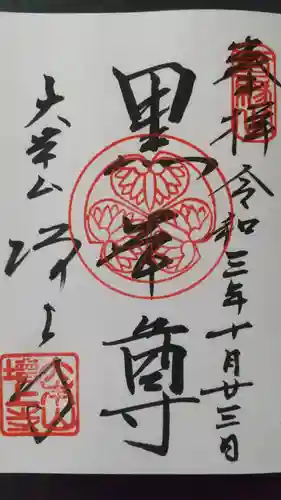 奉拝 令和三年十月廿三日
黒本尊
大本山 増上寺